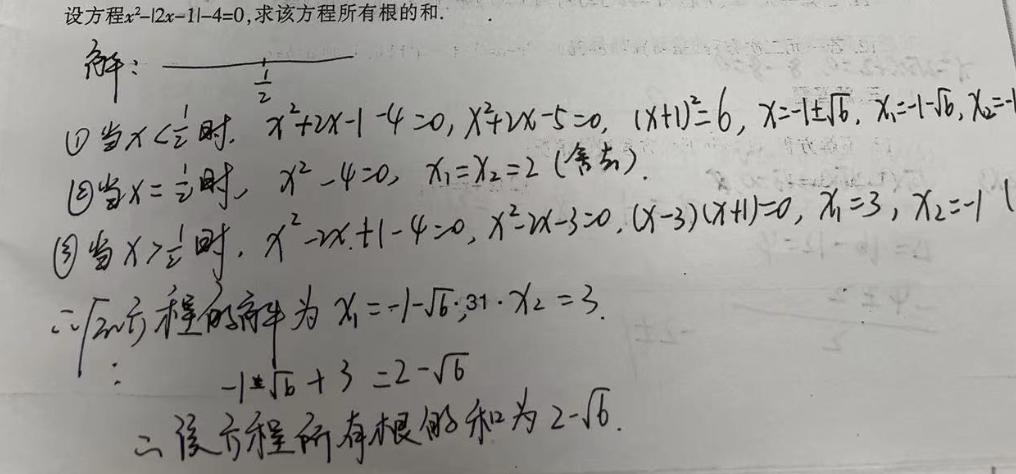 设方程x²-|2x-1|-4=0,求该方程所有根的和.
解:
1/2
①当x<1/2时, x²+2x-1-4=0, x²+2x-5=0, (x+1)²=6, x=-1±√6, x₁=-1-√6, x₂=-1
②当x=1/2时, x²-4=0, x₁=x₂=2(舍去).
③当x>1/2时, x²-2x+1-4=0, x²-2x-3=0, (x-3)(x+1)=0, x₁=3, x₂=-1(
∴原方程的解为x₁=-1-√6; 31·x₂=3.
-1-√6+3=2-√6
∴该方程所有根的和为2-√6.